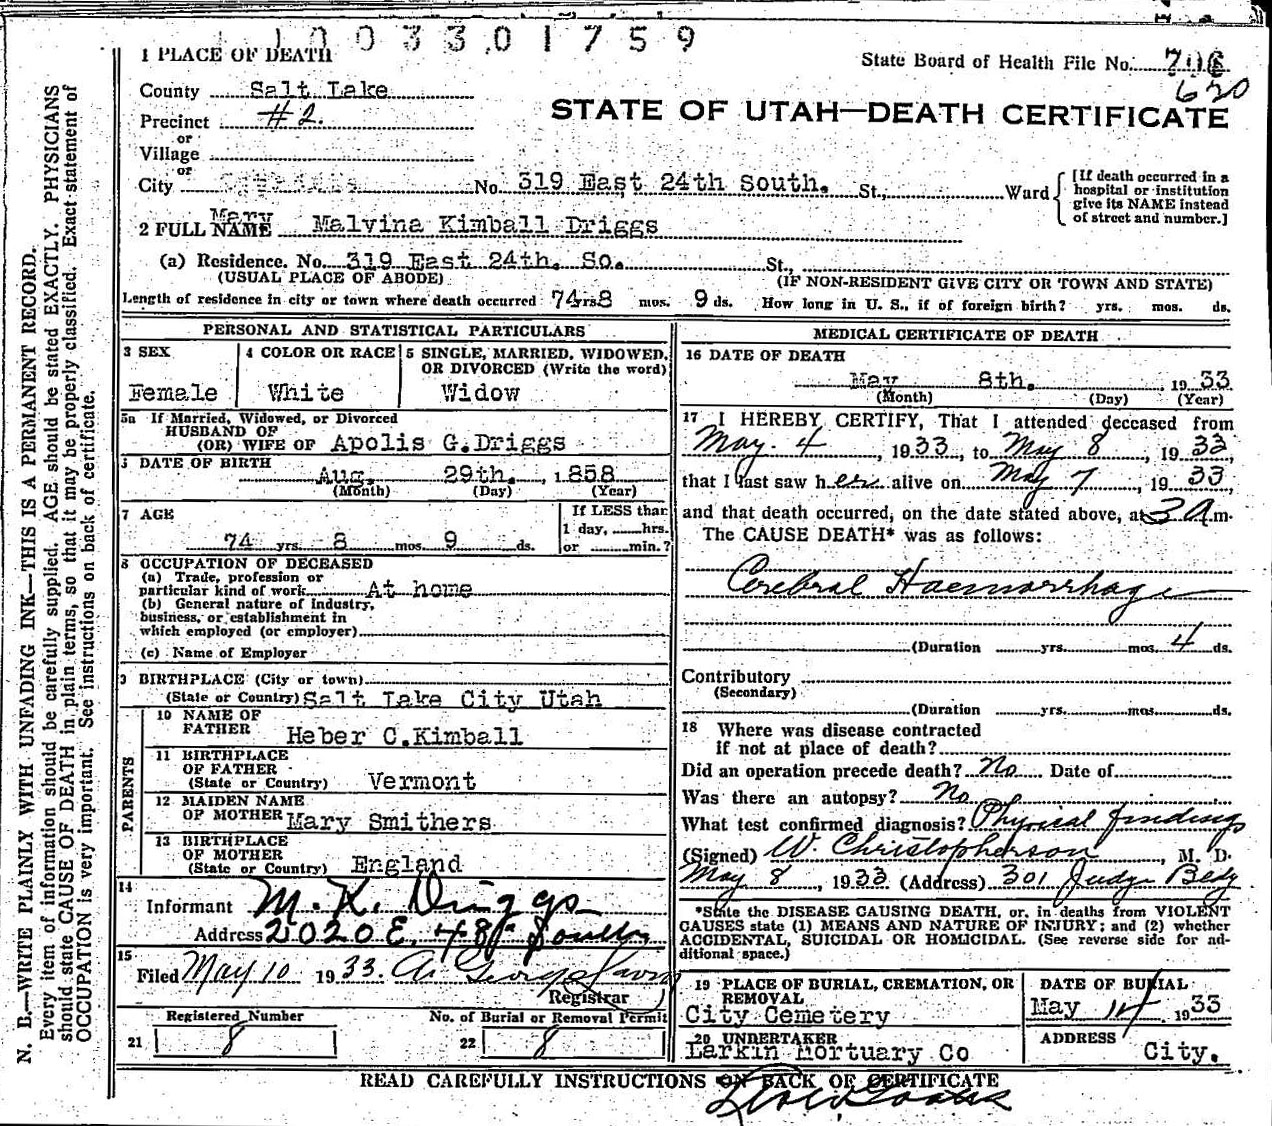 1003301759
1 PLACE OF DEATH
State Board of Health File No.
620
County Salt Lake
STATE OF UTAH—DEATH CERTIFICATE
Precinct #2.
or
Village
or
City No. 319 East 24th South. St., Ward
[If death occurred in a
hospital or institution
give its NAME instead
of street and number.]
Mary
2 FULL NAME Malvina Kimball Driggs
(a) Residence. No. 319 East 24th. So. St.,
(USUAL PLACE OF ABODE) (IF NON-RESIDENT GIVE CITY OR TOWN AND STATE)
Length of residence in city or town where death occurred 74 yrs 8 mos. 9 ds. How long in U. S., if of foreign birth? yrs. mos. ds.
PERSONAL AND STATISTICAL PARTICULARS
3 SEX
Female
4 COLOR OR RACE
White
5 SINGLE, MARRIED, WIDOWED,
OR DIVORCED (Write the word)
Widow
5a If Married, Widowed, or Divorced
HUSBAND OF
(OR) WIFE OF Apolis G.Driggs
DATE OF BIRTH
Aug. 29th. , 1858
(Month) (Day) (Year)
7 AGE
74 yrs. 8 mos. 9 ds.
If LESS than
1 day, hrs.
or min.?
8 OCCUPATION OF DECEASED
(a) Trade, profession or
particular kind of work At home
(b) General nature of industry,
business, or establishment in
which employed (or employer)
(c) Name of Employer
9 BIRTHPLACE (City or town)
(State or Country) Salt Lake City Utah
PARENTS
10 NAME OF
FATHER Heber C.Kimball
11 BIRTHPLACE
OF FATHER
(State or Country) Vermont
12 MAIDEN NAME
OF MOTHER Mary Smithers
13 BIRTHPLACE
OF MOTHER
(State or Country) England
14
Informant M. K. Driggs
Address 2020 E. 48th South
15
Filed May 10 1933.
Registrar
Registered Number
21 8
No. of Burial or Removal Permit
22 8
MEDICAL CERTIFICATE OF DEATH
16 DATE OF DEATH
May 8th. , 1933
(Month) (Day) (Year)
17 I HEREBY CERTIFY, That I attended deceased from
May. 4 , 1933, to May 8 , 1933,
that I last saw her alive on May 7 , 1933,
and that death occurred, on the date stated above, at 3 A m.
The CAUSE DEATH* was as follows:
Cerebral Haemorrhage
(Duration yrs. mos. 4 ds.
Contributory
(Secondary)
(Duration yrs. mos. ds.
18 Where was disease contracted
if not at place of death?
Did an operation precede death? No Date of
Was there an autopsy? No
What test confirmed diagnosis? Physical findings
(Signed) W. Christopherson , M. D.
May 8 , 1933 (Address) 301 Judge Bldg
*State the DISEASE CAUSING DEATH, or, in deaths from VIOLENT
CAUSES state (1) MEANS AND NATURE OF INJURY; and (2) whether
ACCIDENTAL, SUICIDAL OR HOMICIDAL. (See reverse side for ad-
ditional space.)
19 PLACE OF BURIAL, CREMATION, OR
REMOVAL
City Cemetery
DATE OF BURIAL
May 1933
20 UNDERTAKER
Larkin Mortuary Co
ADDRESS
City.
READ CAREFULLY INSTRUCTIONS ON BACK OF CERTIFICATE
N. B.—WRITE PLAINLY WITH UNFADING INK—THIS IS A PERMANENT RECORD.
Every item of information should be carefully supplied. AGE should be stated EXACTLY. PHYSICIANS
should state CAUSE OF DEATH in plain terms, so that it may be properly classified. Exact statement of
OCCUPATION is very important. See instructions on back of certificate.